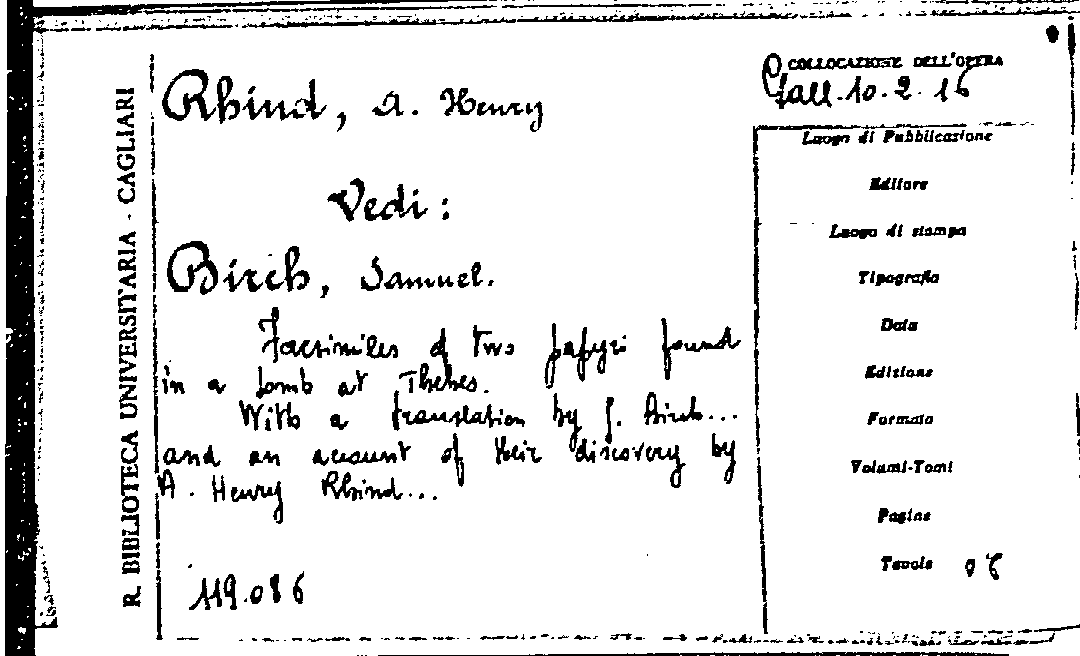 R. BIBLIOTECA UNIVERSITARIA - CAGLIARI
Rhind, A. Henry
Vedi:
Birch, Samuel.
Facsimiles of two papyri found
in a tomb at Thebes.
With a translation by S. Birch...
and an account of their discovery by
A. Henry Rhind...
119.086
COLLOCAZIONE DELL'OPERA
Gall. 10. 2. 16
Luogo di Pubblicazione
Editore
Luogo di stampa
Tipografia
Data
Edizione
Formato
Volumi-Tomi
Pagine
Tavole